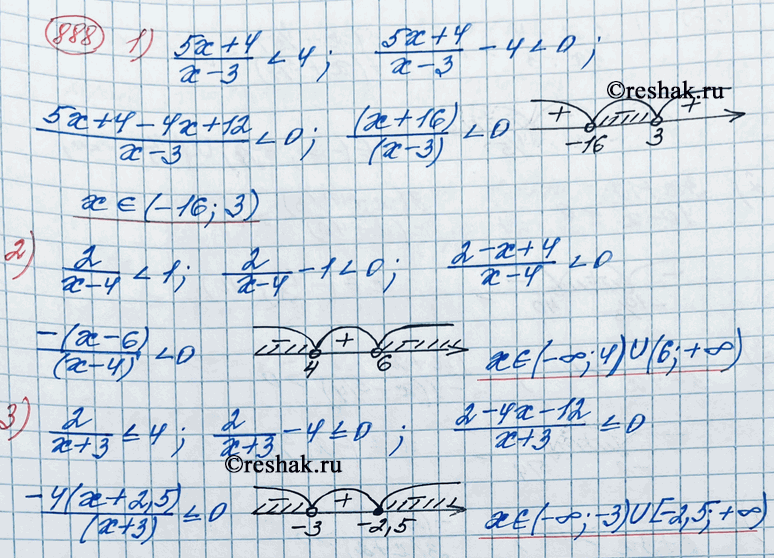 888 1) (5x+4)/(x-3) < 4; (5x+4)/(x-3) - 4 < 0;
©reshak.ru
(5x+4-4x+12)/(x-3) < 0; (x+16)/(x-3) < 0 + -16 3 +
x ∈ (-16; 3)
2) 2/(x-4) < 1; 2/(x-4) - 1 < 0; (2-x+4)/(x-4) < 0
-(x-6)/(x-4) < 0 - 4 + 6 - x ∈ (-∞; 4) ∪ (6; +∞)
3) 2/(x+3) ≤ 4; 2/(x+3) - 4 ≤ 0; (2-4x-12)/(x+3) ≤ 0
©reshak.ru
-4(x+2,5)/(x+3) ≤ 0 - -3 + -2,5 - x ∈ (-∞; -3) ∪ [-2,5; +∞)